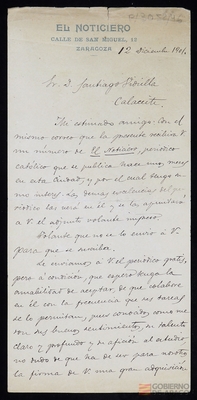 EL NOTICIERO
CALLE DE SAN MIGUEL, 12
ZARAGOZA
12 Diciembre 1901.
Sr. D. Santiago Vidiella
Calaceite.
Mi estimado amigo: Con el
mismo correo que la presente recibirá V.
un número de El Noticiero, periódico
católico que se publica hace unos meses
en esta Ciudad, y por el cual tengo su-
mo interés. Las demás
verá en él, y le
a V. el adjunto volante impreso.
Volante que no lo envío á V.
para que se suscriba.
Le enviamos á V. el periódico gratis,
pero á condición, que espero tenga la
amabilidad de aceptar, de que colabore
en él con la frecuencia que sus tareas
se lo permitan; pues conocidos como me
son sus buenos sentimientos, su talento
claro y profundo y su afición al estudio
no dudo de que ha de ser para nosotros
la firma de V. una gran adquisición.
GOBIERNO
DE ARAGON